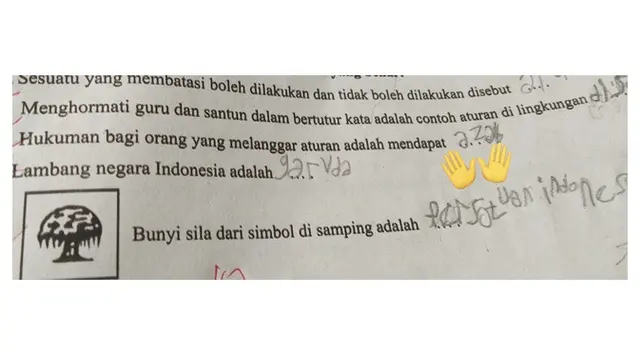 Sesuatu yang membatasi boleh dilakukan dan tidak boleh dilakukan disebut
Menghormati guru dan santun dalam bertutur kata adalah contoh aturan di lingkungan
Hukuman bagi orang yang melanggar aturan adalah mendapat azab
Lambang negara Indonesia adalah garuda
Bunyi sila dari simbol di samping adalah